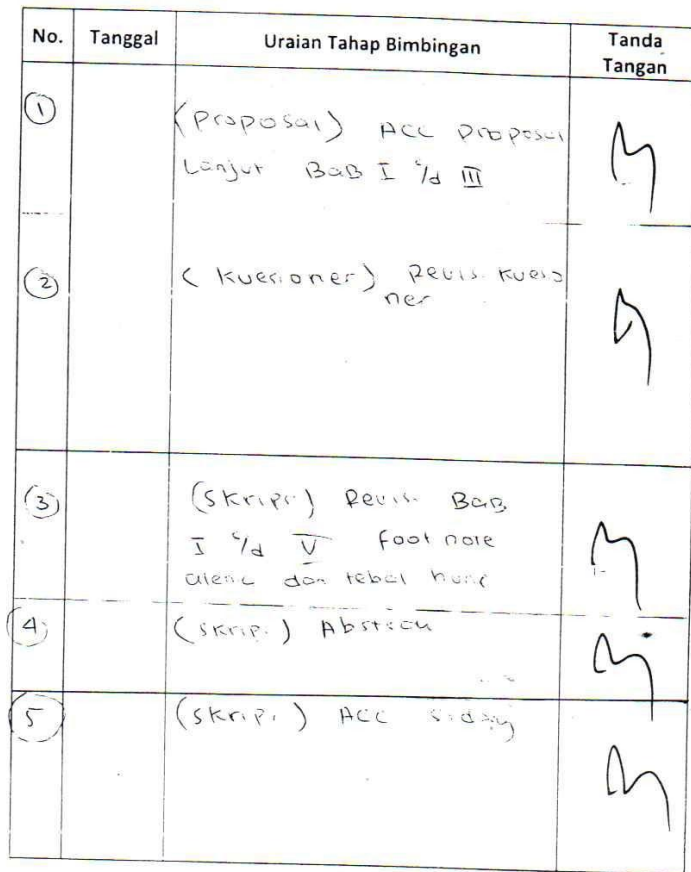 No. Tanggal Uraian Tahap Bimbingan Tanda Tangan
1 (Proposal) ACC Proposal
Lanjut BaB I s/d III
2 (Kuesioner) Revisi Kuesio
ner
3 (Skripsi) Revisi BaB
I s/d V Foot note
dan tebal
4 (Skripsi)
5 (Skripsi) ACC Sidang